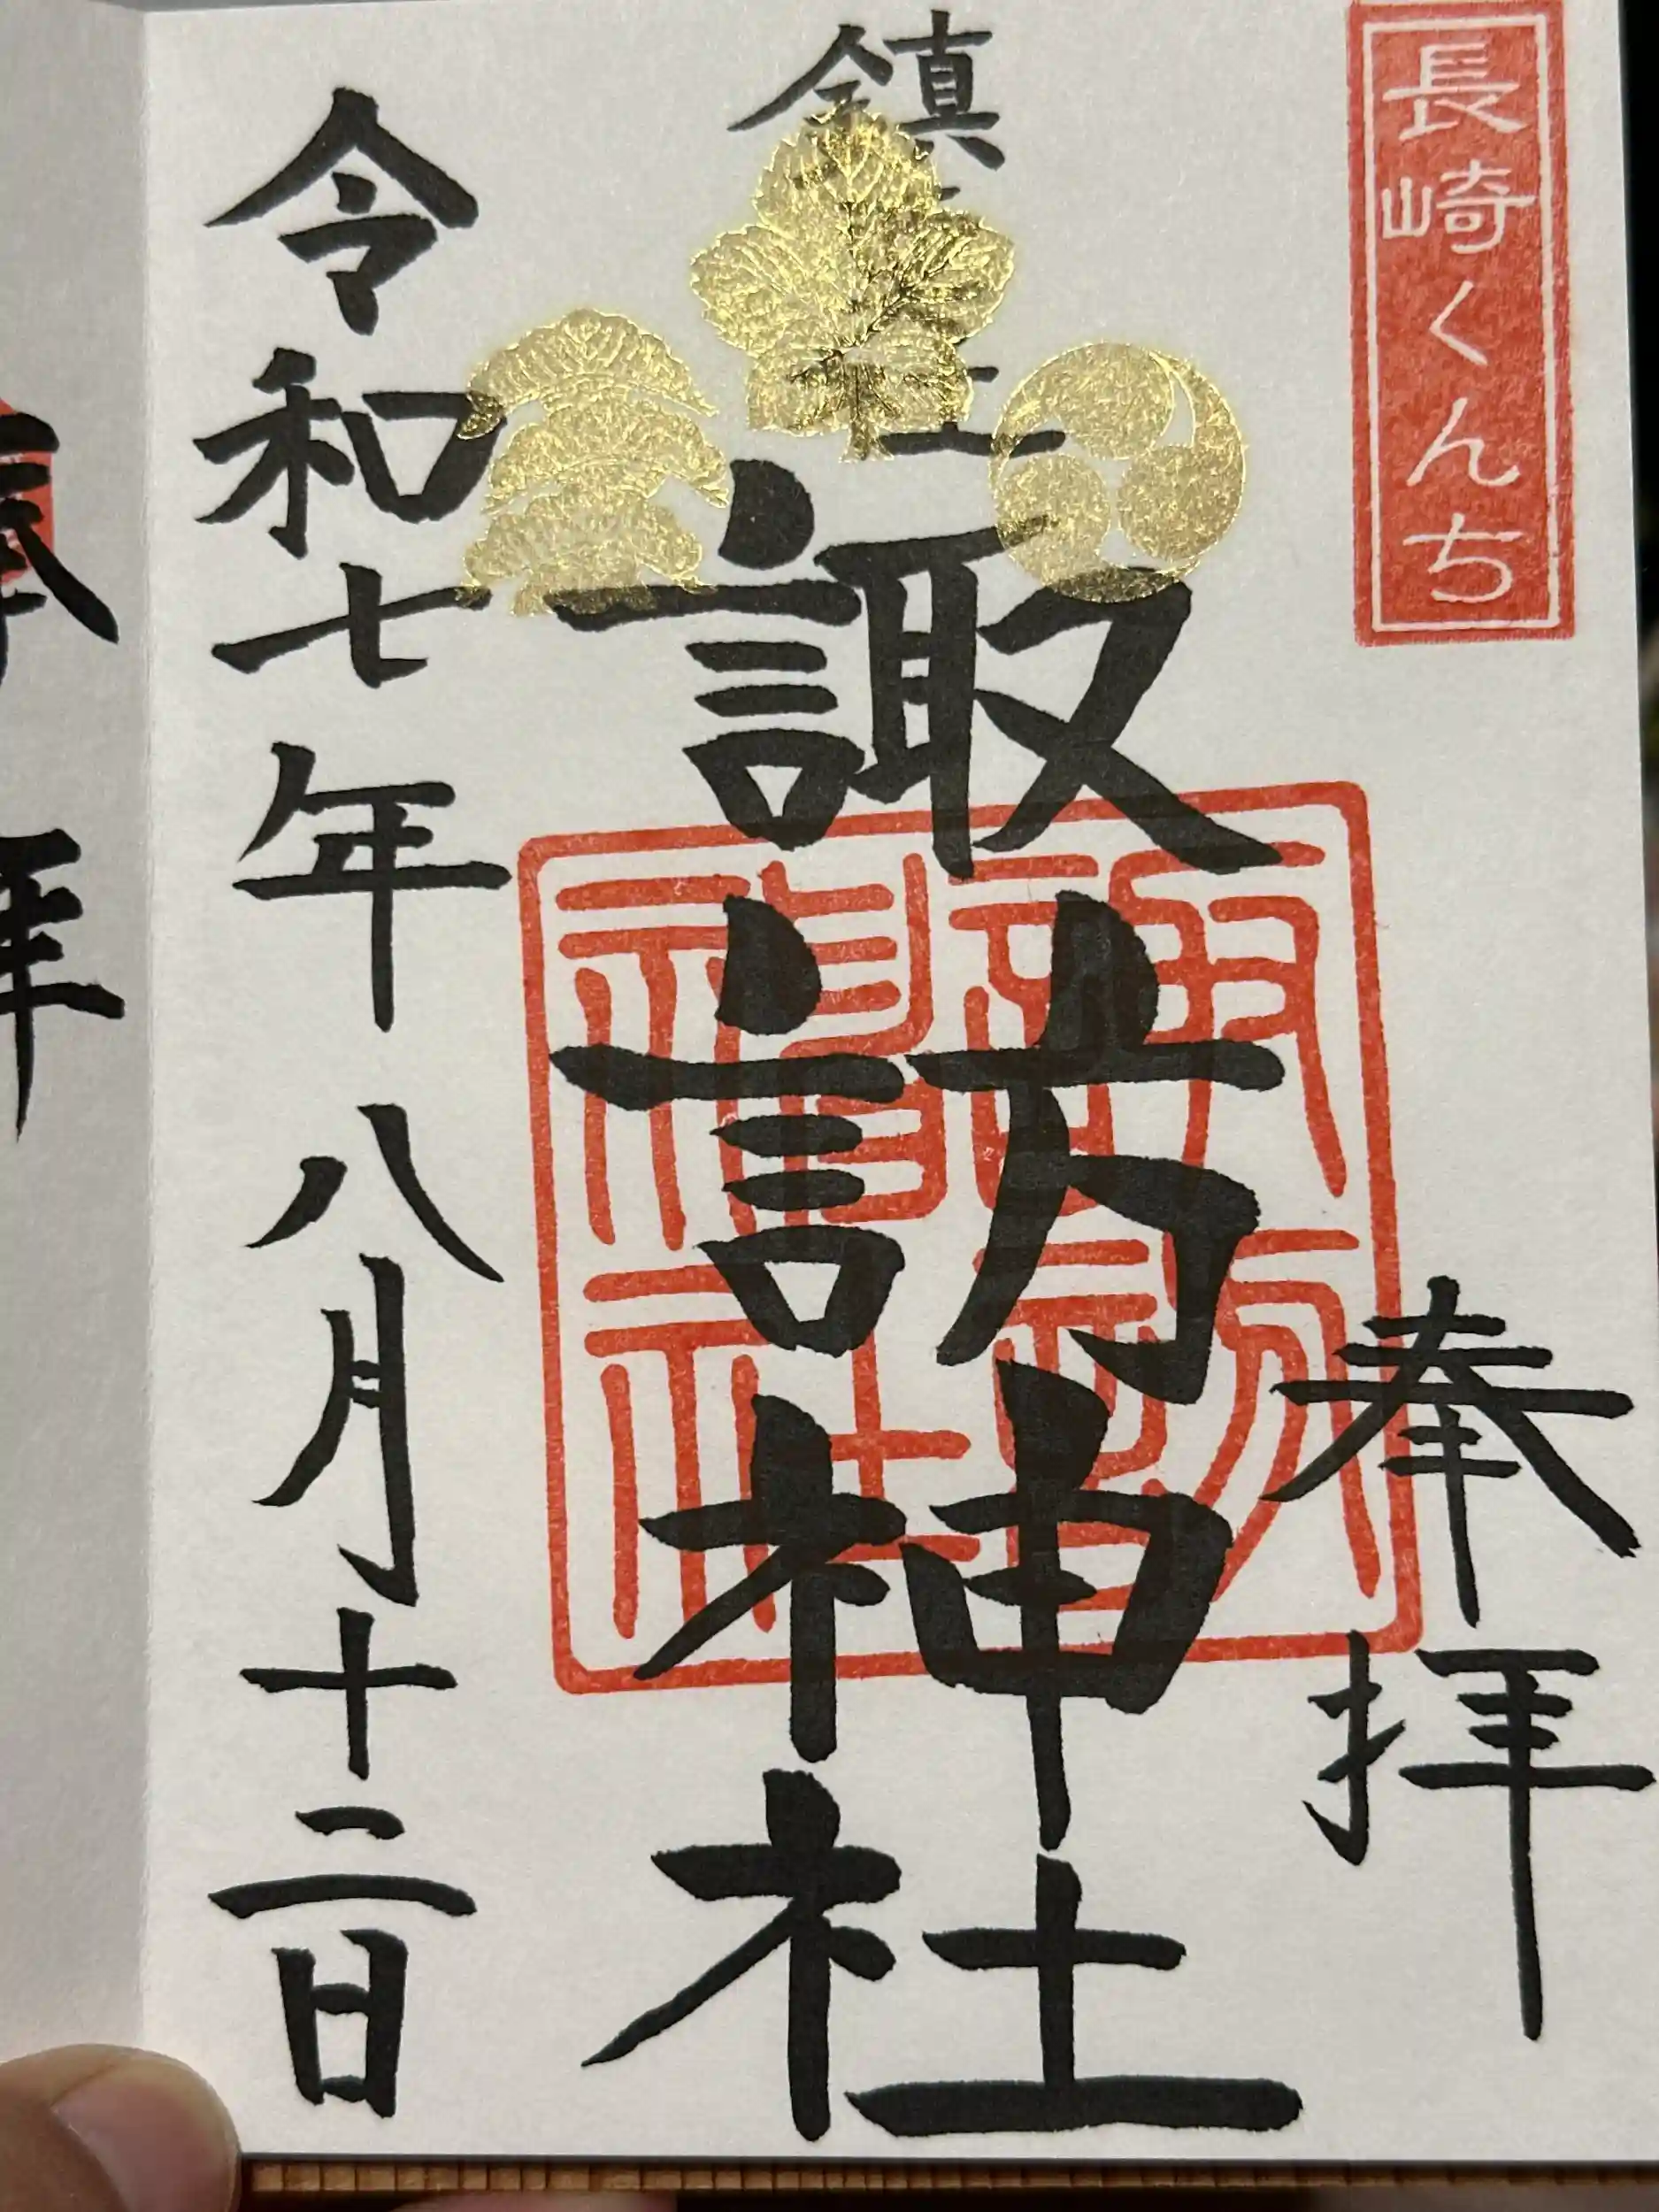 長崎くんち
奉拝
鎮
諏訪神社
諏訪
神社
令和七年八月十二日
拝